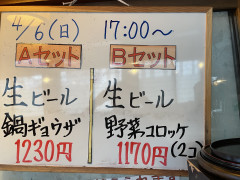 4/6(日) 17:00〜
Aセット
生ビール
鍋ギョウザ
1230円
Bセット
生ビール
野菜コロッケ
(2コ)
1170円